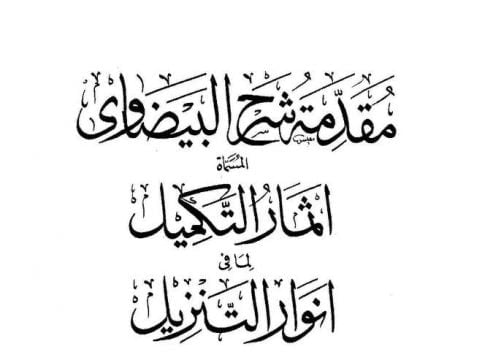 مُقَدِّمَة شَرح البَيضَاوى
المُسَمَّاة
اثمَارُ التَّكمِيل
لِمَا فِى
انوَار التَّنزِيل